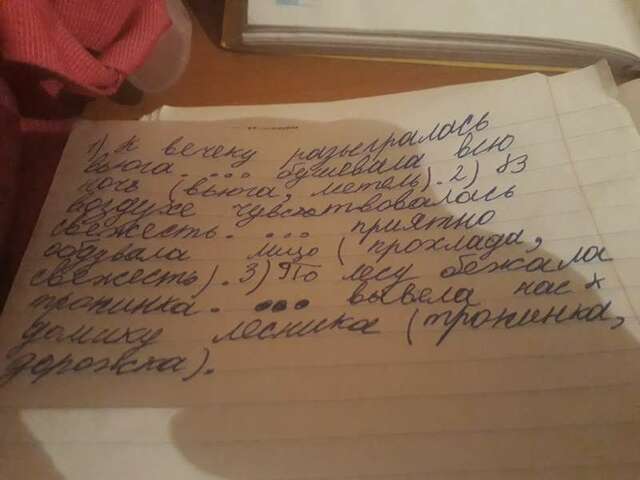 1) К вечеку разыгралась
вьюга. .... бушевала всю
ночь (вьюга, метель). 2) В
воздухе чувствовалась
свежесть. ... приятно
обдувала лицо (прохлада,
свежесть). 3) По лесу бежала
тропинка. ... вывела нас к
домику лесника (тропинка,
дорожка).